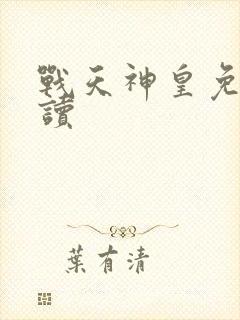 戰天神皇免
讀
葉有清